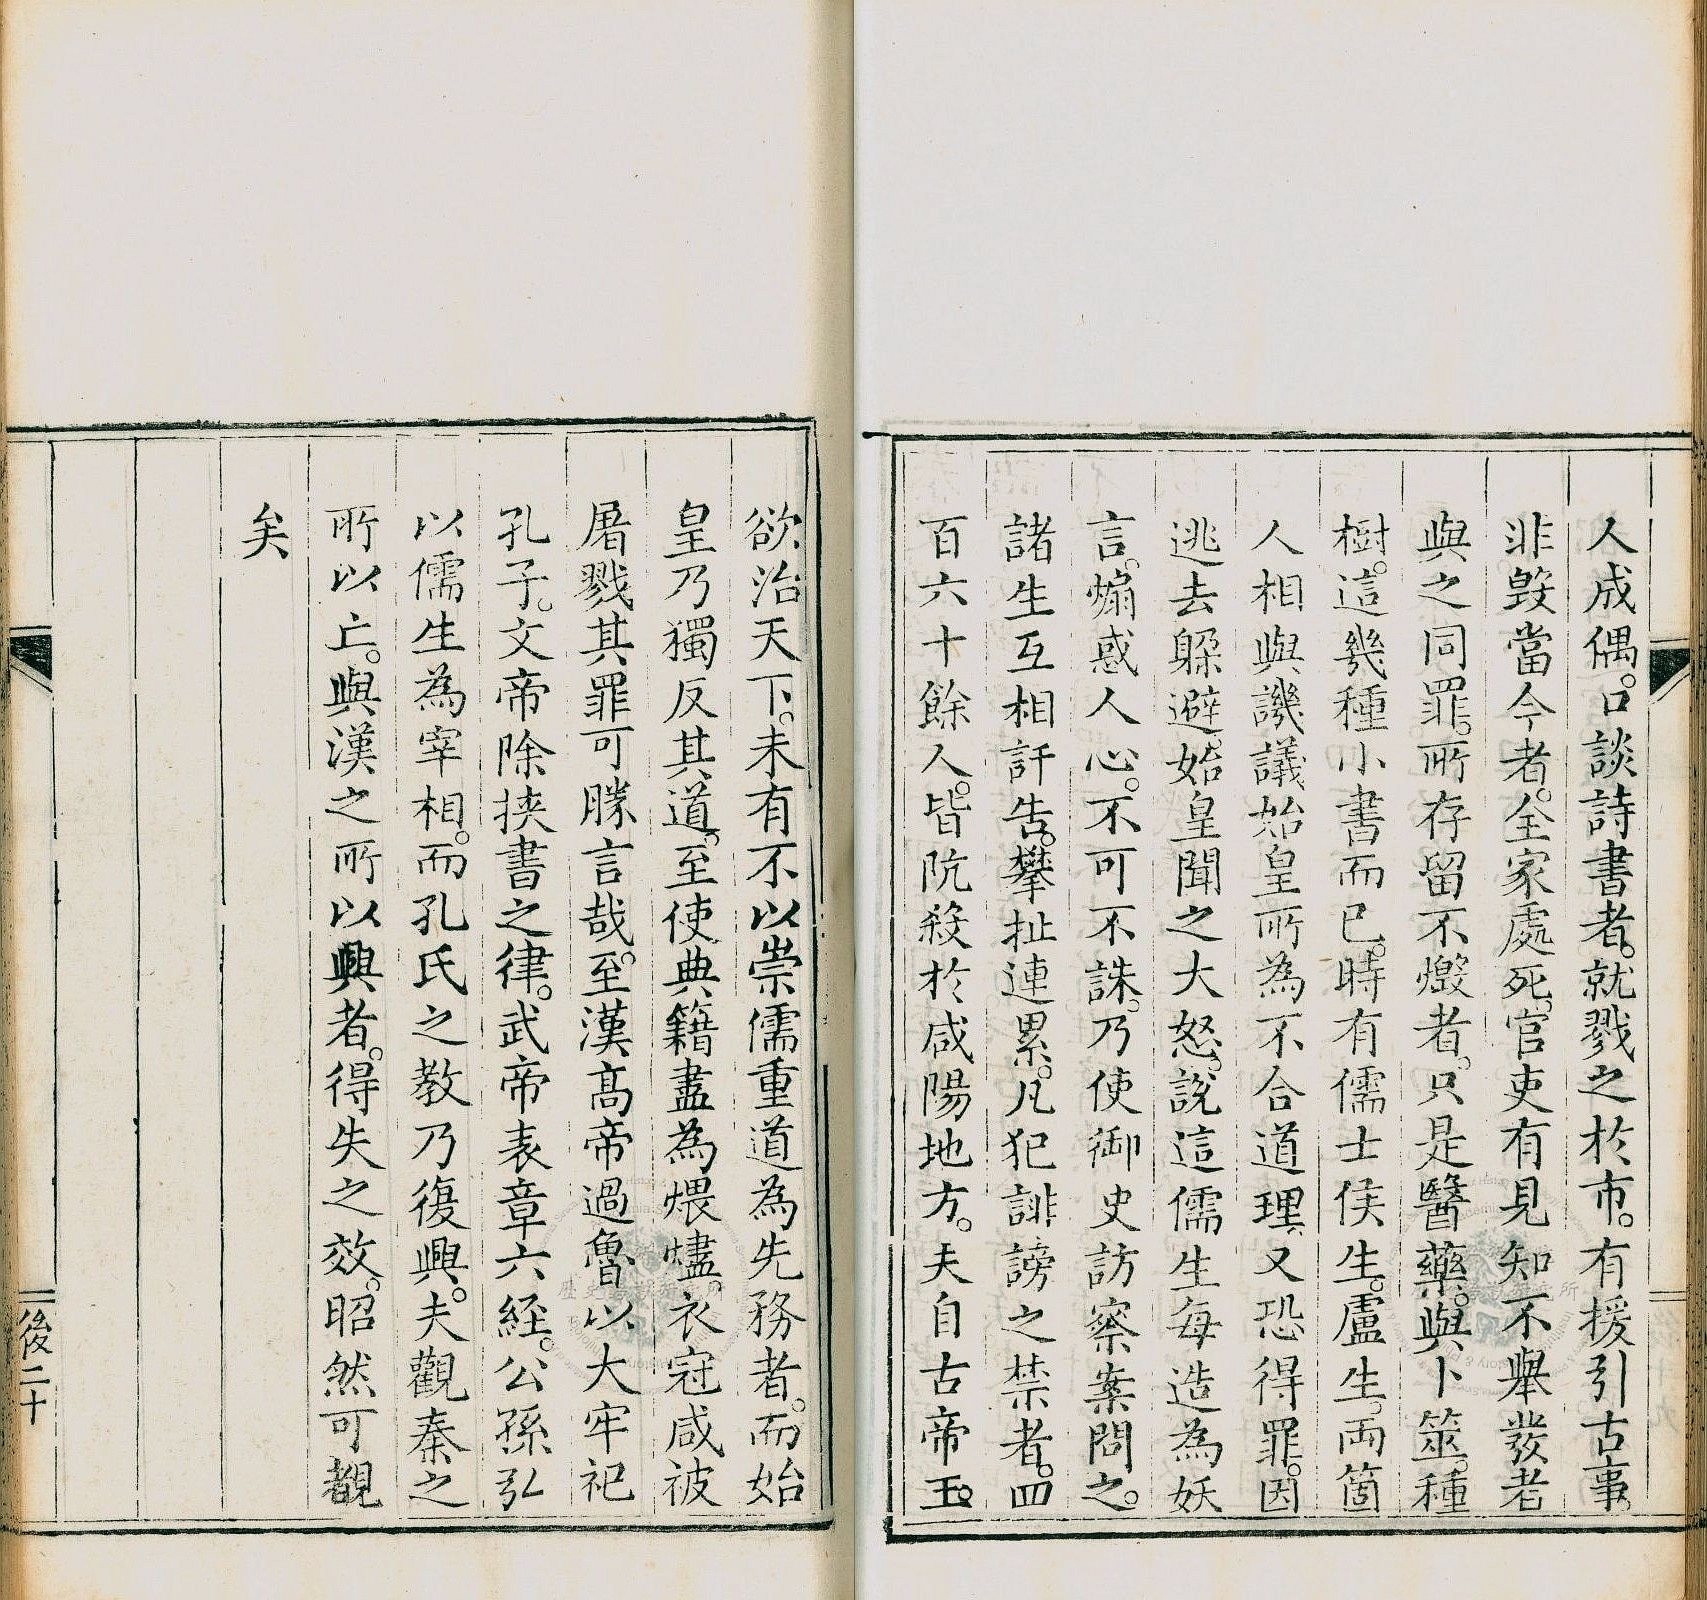 人成偶。口談詩書者。就戮之於市。有援引古事。
非毀當今者。全家處死。官吏有見知不舉發者
與之同罪。所存留不燬者。只是醫藥。與卜筮。種
樹。這幾種小書而已。時有儒士侯生。盧生。両箇
人相與譏議始皇所為不合道理。又恐得罪。因
逃去躲避。始皇聞之大怒。說這儒生每造為妖
言。煽惑人心。不可不誅。乃使御史訪察案問之。
諸生互相訐告。攀扯連累。凡犯誹謗之禁者。四
百六十餘人。皆阬殺於咸陽地方。夫自古帝王。
欲治天下。未有不以崇儒重道為先務者。而始
皇乃獨反其道。至使典籍盡為煨燼。衣冠咸被
屠戮其罪可勝言哉。至漢高帝過魯以大牢祀
孔子。文帝除挾書之律。武帝表章六經。公孫弘
以儒生為宰相。而孔氏之教乃復興。夫觀秦之
所以亡。與漢之所以興者。得失之效。昭然可觀
矣
後二十